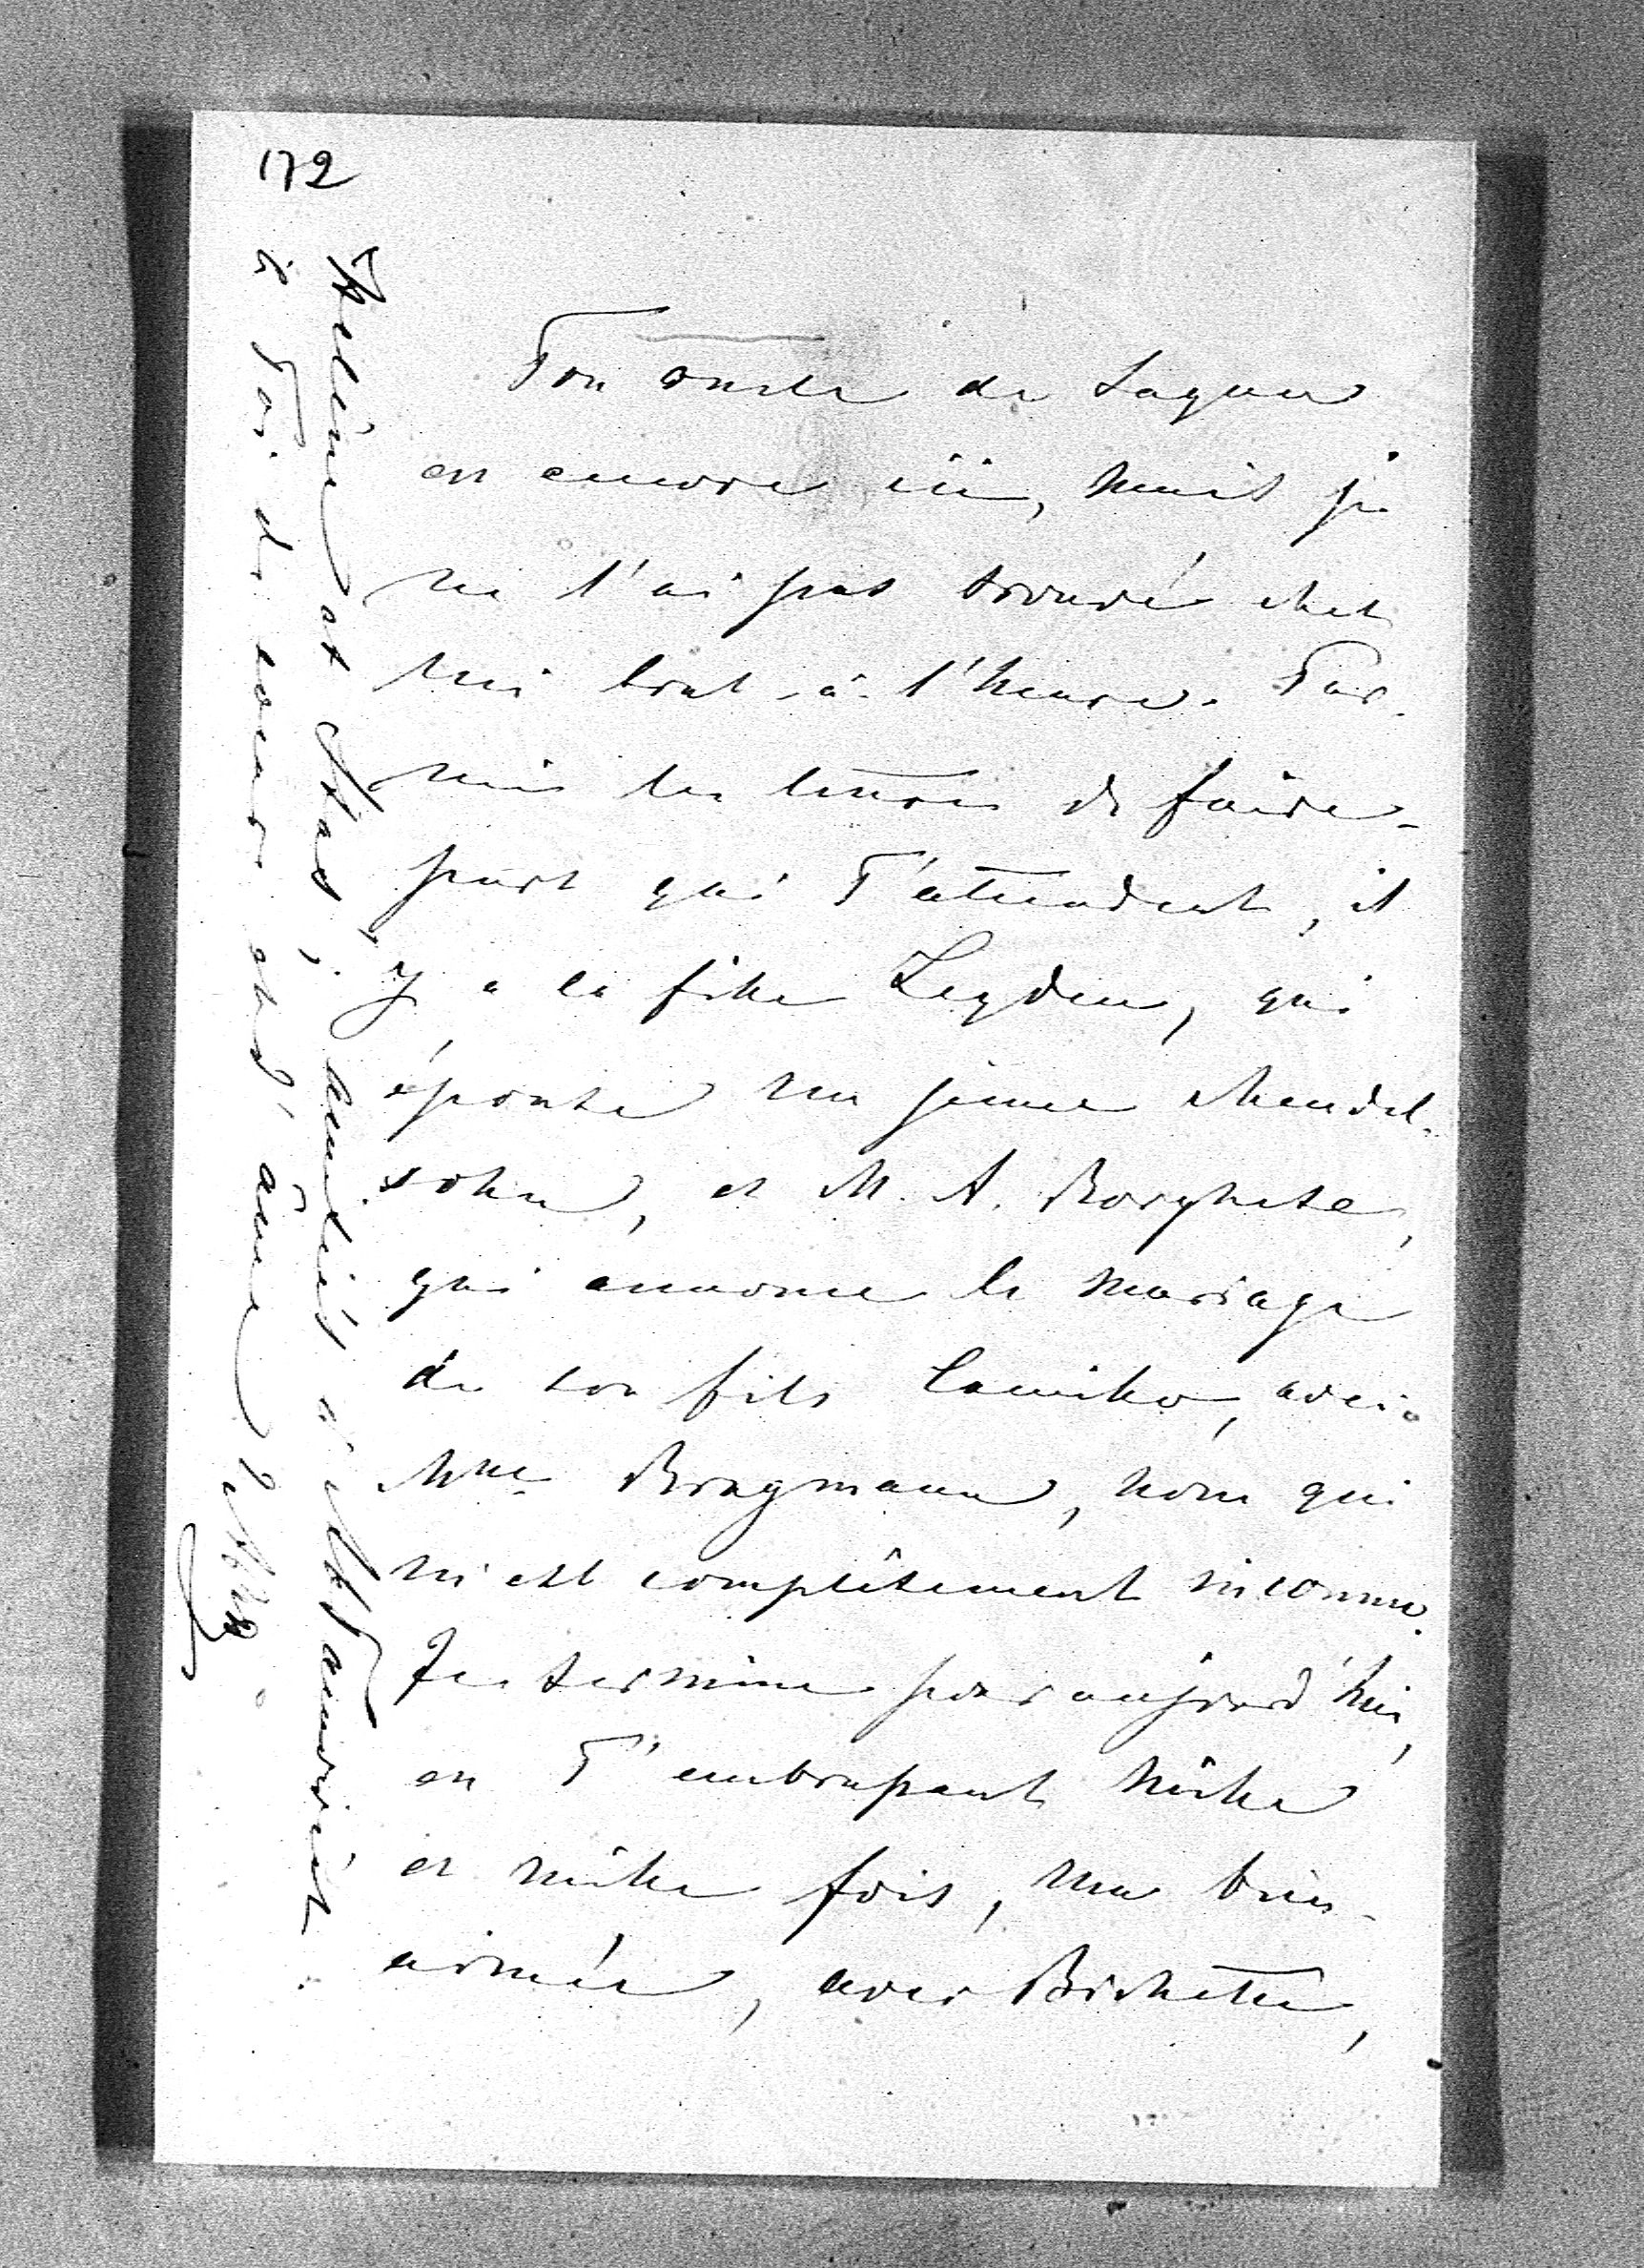 172
Ton oncle de Lagrené
est encore ici, mais je
ne l'ai pas trouvé chez
lui tout-à-l'heure. Par-
mis les lettres de faire-
part qui T'attendent, il
y a la fille Leyden, qui
épouse un jeune Mendel-
sohn, et M. A. Borghese,
qui annonce le mariage
de son fils Camillo, avec
Mme Brugmann, nom qui
m'est complètement inconnu.
Je termine pour aujourd'hui,
en T'embrassant mille
et mille fois, ma bien-
aimée, avec Bichette,
Hélène et Stas; amitiés à Md Tauvriet
à Toi de coeur et d'âme